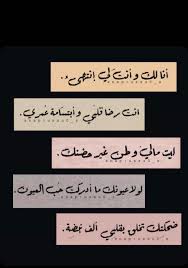 أنا لك و أنت لي إنتهىٰ.
انت رضا قلبي و أبتسامة عمري.
ليت مالي وطن غير حضنك.
لولا عيونك ما أدركت حب العيون.
ضحكتك تخلق بقلبي ألف نبضة.